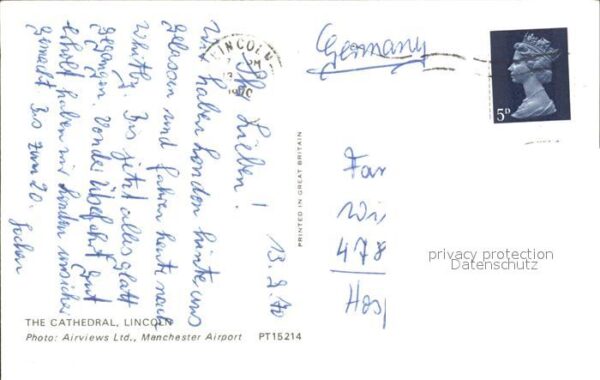 Germany
LINCOLN
1970
5D
13.9.70
Ihr Lieben!
Wir haben London hinter uns
gelassen und fahren heute nach
Whitby. Bis jetzt alles glatt
gegangen. Von der Überfahrt gut
erholt haben wir London unsicher
gemacht. Bis zum 20.
Jochen
PRINTED IN GREAT BRITAIN
478
privacy protection
Datenschutz
THE CATHEDRAL, LINCOLN
Photo: Airviews Ltd., Manchester Airport PT15214